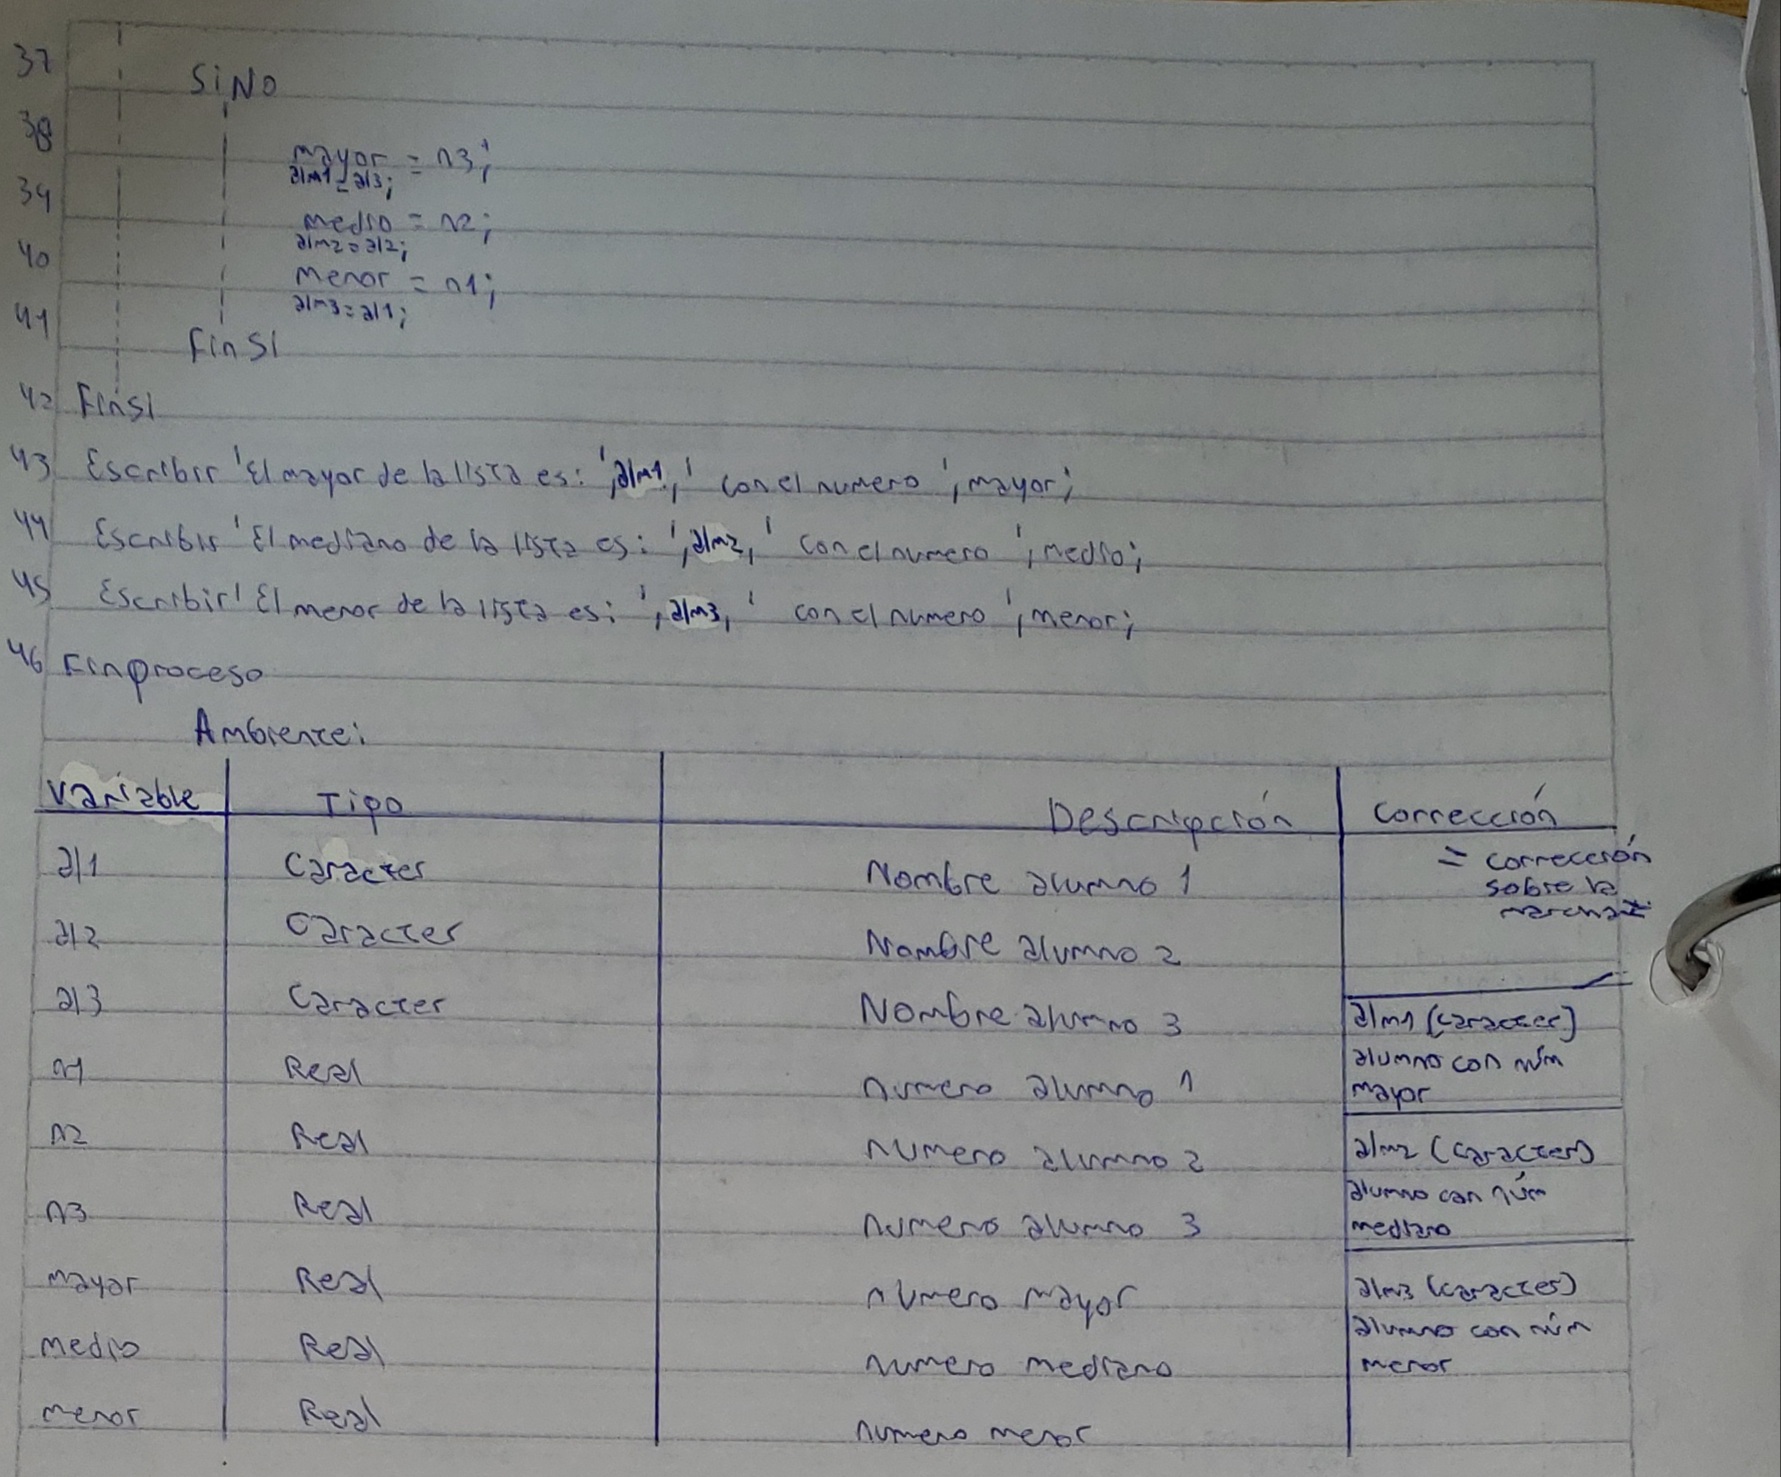 37 SiNo
38 mayor = n3;
alm1=al3;
39 medio = n2;
alm2=al2;
40 menor = n1;
alm3=al1;
41 FinSi
42 FinSi
43 Escribir 'El mayor de la lista es: ',alm1,' con el numero ', mayor;
44 Escribir 'El mediano de la lista es: ',alm2,' con el numero ', medio;
45 Escribir 'El menor de la lista es: ',alm3,' con el numero ', menor;
46 Finproceso
Ambiente:
Variable Tipo Descripción Corrección
al1 Caracter Nombre alumno 1 = corrección
sobre la
marcha =
al2 Caracter Nombre alumno 2
al3 Caracter Nombre alumno 3 alm1 (caracter)
n1 Real numero alumno 1 alumno con núm
mayor
n2 Real numero alumno 2 alm2 (caracter)
n3 Real numero alumno 3 alumno con núm
mediano
mayor Real numero mayor alm3 (caracter)
medio Real numero mediano alumno con núm
menor
menor Real numero menor